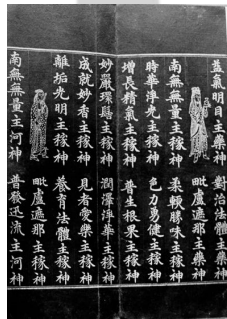 益氣明目主藥神
對治法體主藥神
毗盧遮那主藥神
南無無量主稼神
柔輭勝味主稼神
時華淨光主稼神
色力勇健主稼神
增長精氣主稼神
普生根果主稼神
妙嚴環髻主稼神
潤澤淨華主稼神
成就妙香主稼神
見者愛樂主稼神
離垢光明主稼神
養育法體主稼神
毗盧遮那主稼神
南無無量主河神
普發迅流主河神